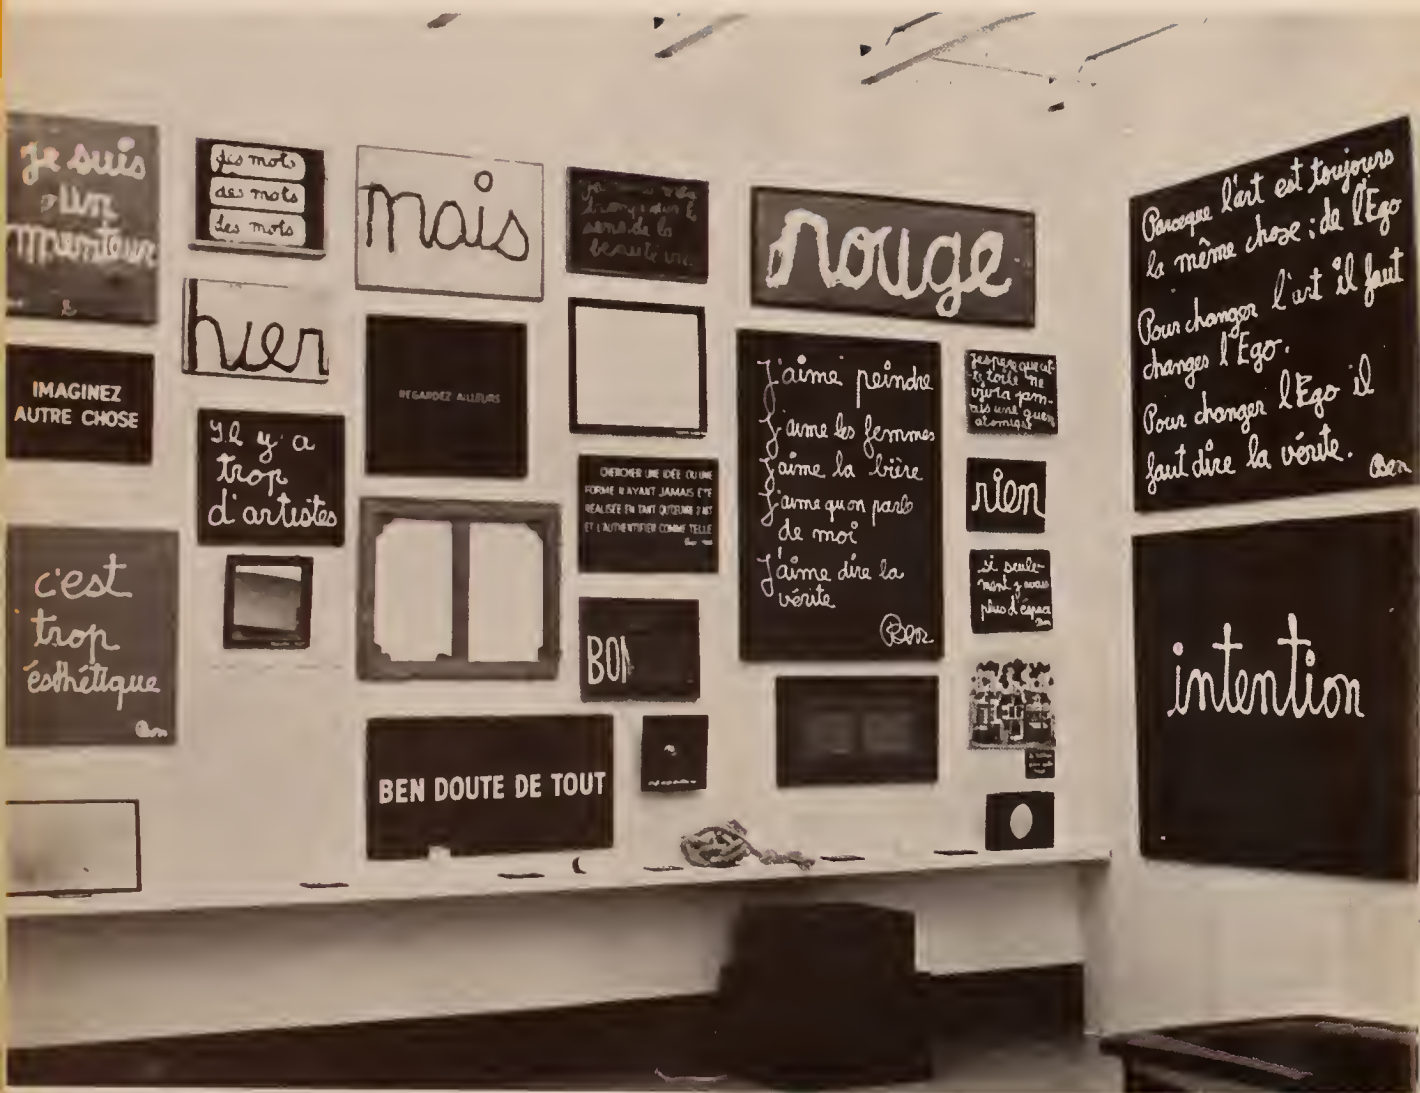 je suis
un
menteur
IMAGINEZ
AUTRE CHOSE
c'est
trop
ésthétique
Ben
des mots
des mots
des mots
hier
Il y a
trop
d'artistes
mais
REGARDEZ AILLEURS
BEN DOUTE DE TOUT
sens de la
beauté
CHERCHER UNE IDÉE OU UNE
FORME N'AYANT JAMAIS ÉTÉ
RÉALISÉE EN TANT QU'OEUVRE D'ART
ET L'AUTHENTIFIER COMME TELLE
Ben
BON
rouge
J'aime peindre
J'aime les femmes
J'aime la bière
J'aime qu'on parle
de moi
J'aime dire la
vérite
Ben
J'espere que cet-
te toile ne
vivra jam-
ais une guerre
atomique
rien
si seule-
ment j'avais
plus d'éspace
Ben
Parceque l'art est toujours
la même chose : de l'Ego
Pour changer l'art il faut
changer l'Ego.
Pour changer l'Ego il
faut dire la vérite.
Ben
intention